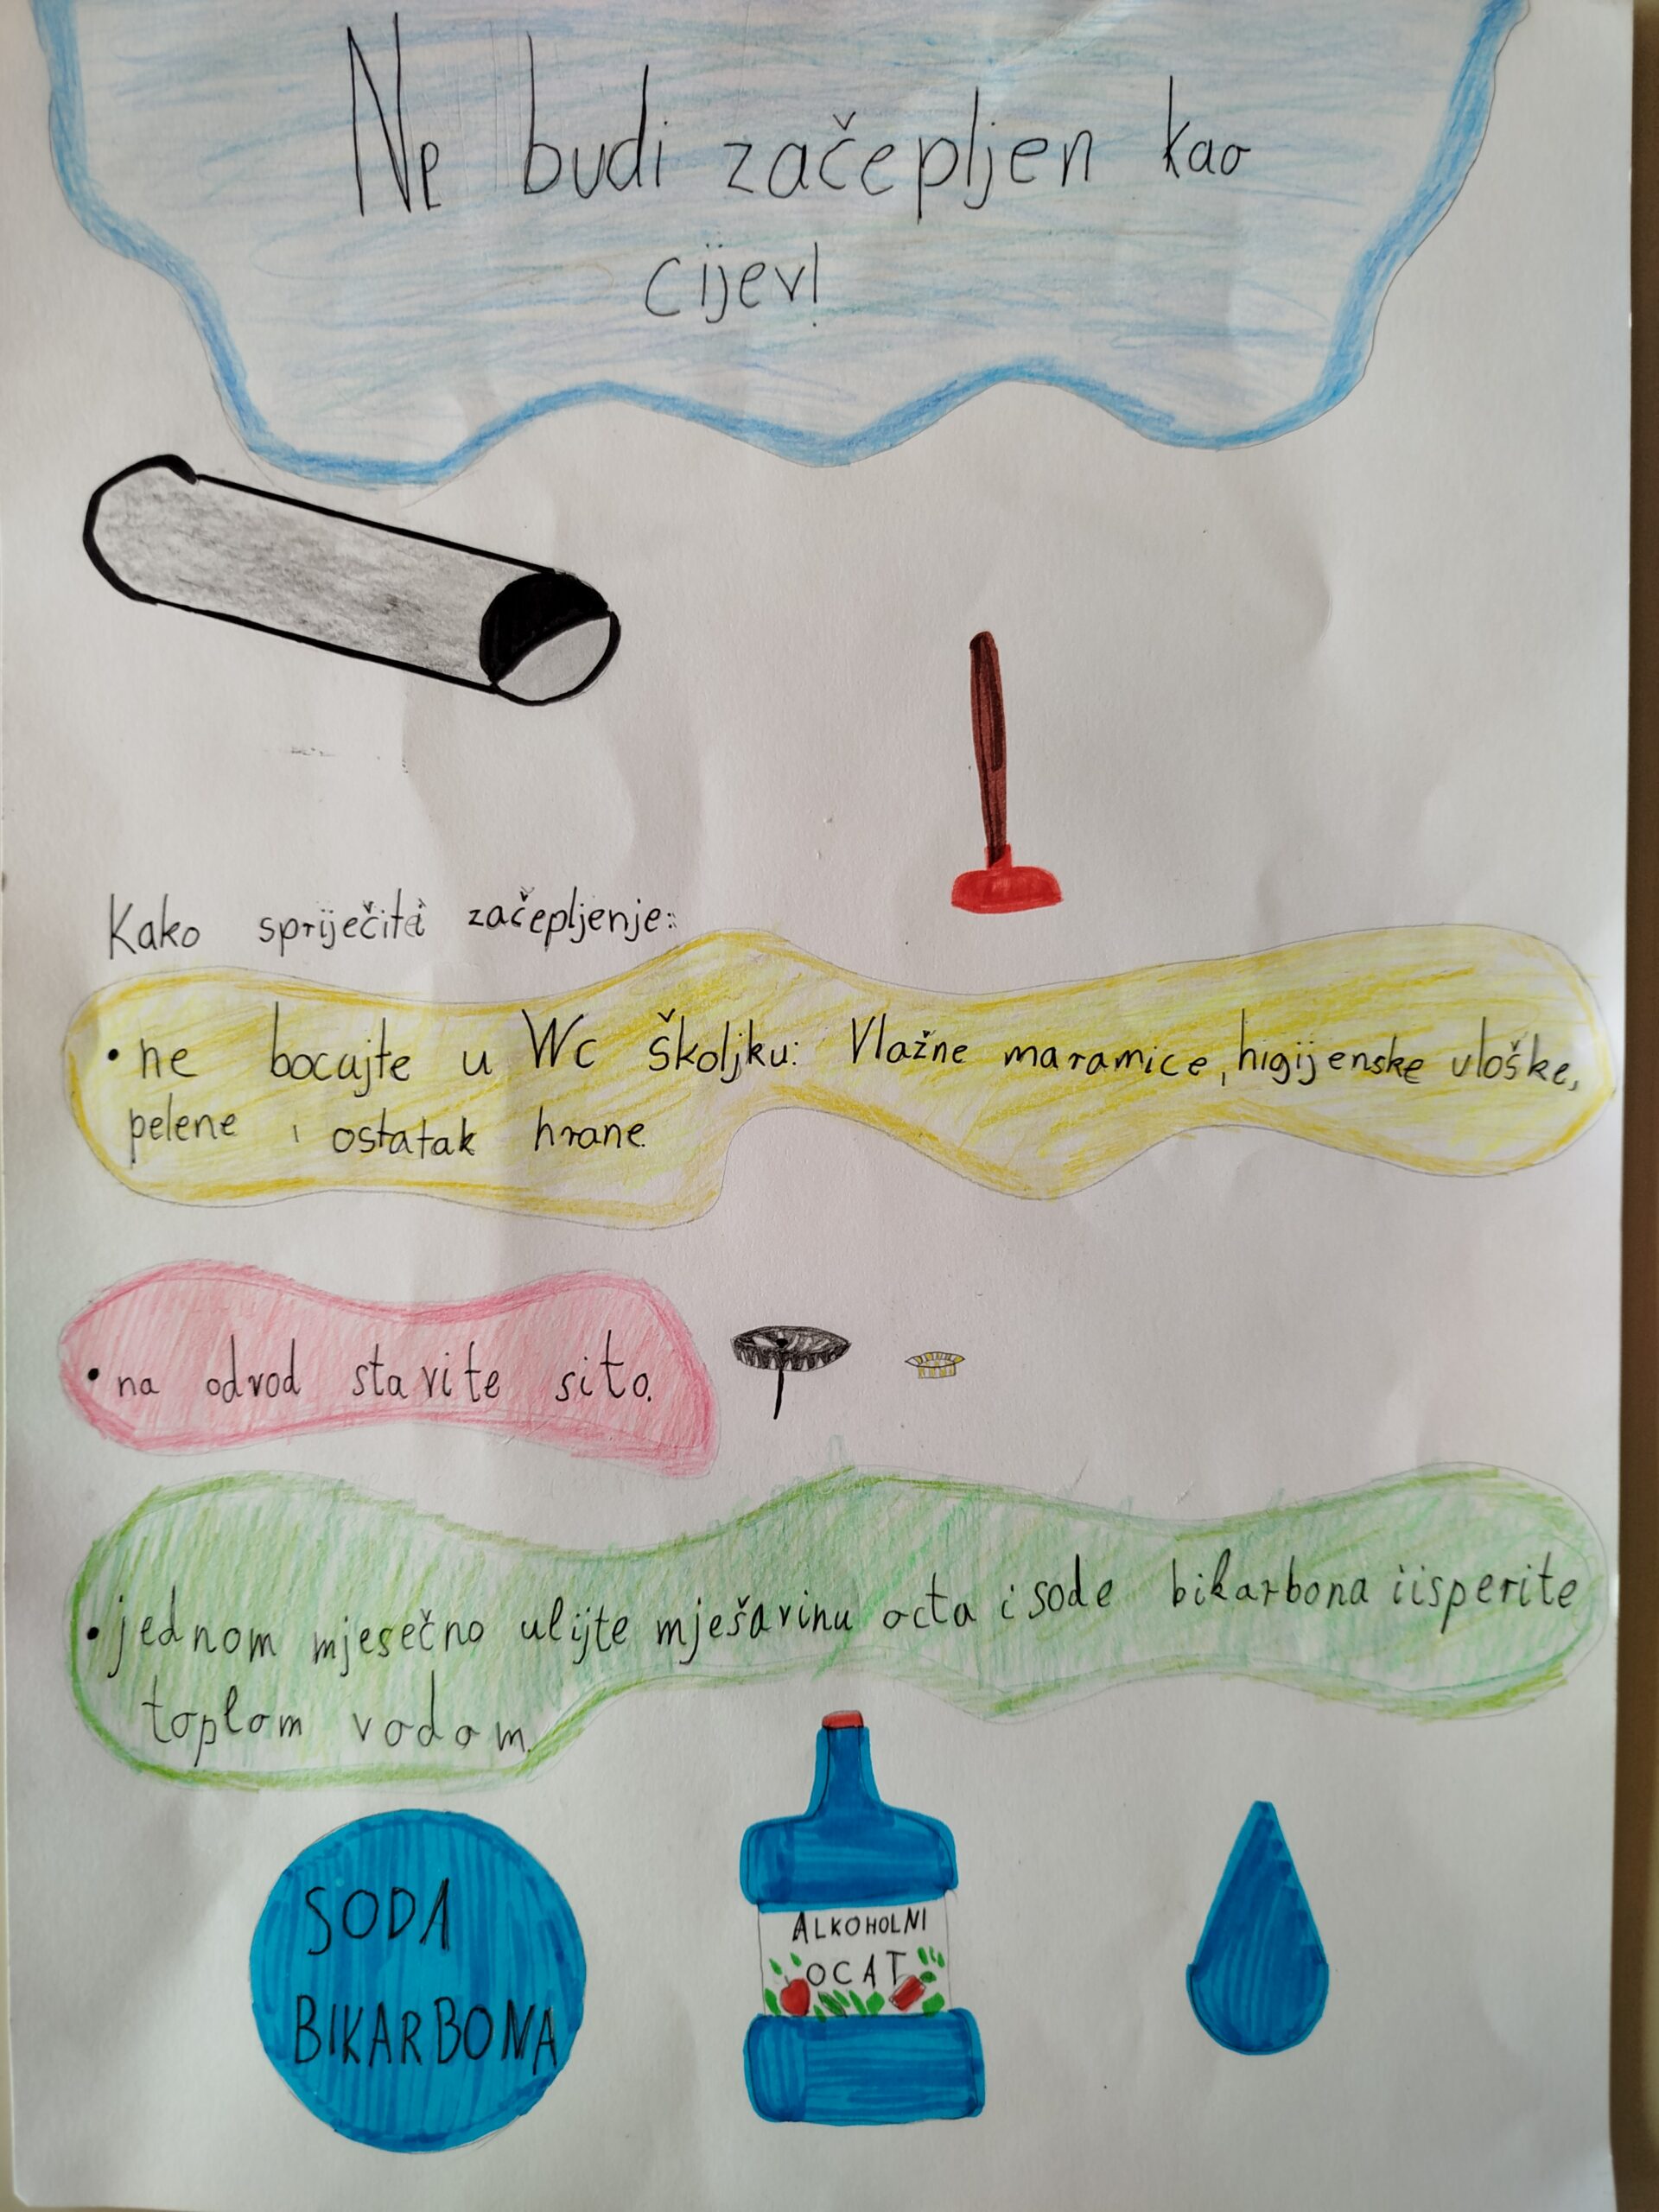 Ne budi začepljen kao
cijev!
Kako spriječiti začepljenje:
• ne bocajte u Wc školjku: Vlažne maramice, higijenske vloške,
pelene i ostatak hrane
• na odvod stavite sito.
• jednom mjesečno ulijte mješavinu octa i sode bikarbona i isperite
toplom vodom.
SODA
BIKARBONA
ALKOHOLNI
OCAT